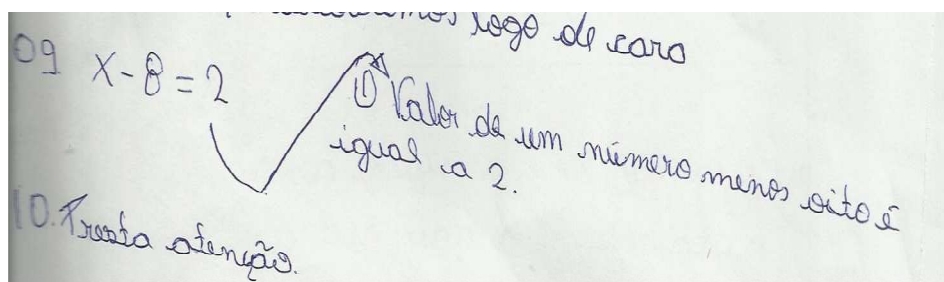 logo de cara
09 x-8=2
① Valor de um número menos oito é
igual a 2.
10. Presta atenção.